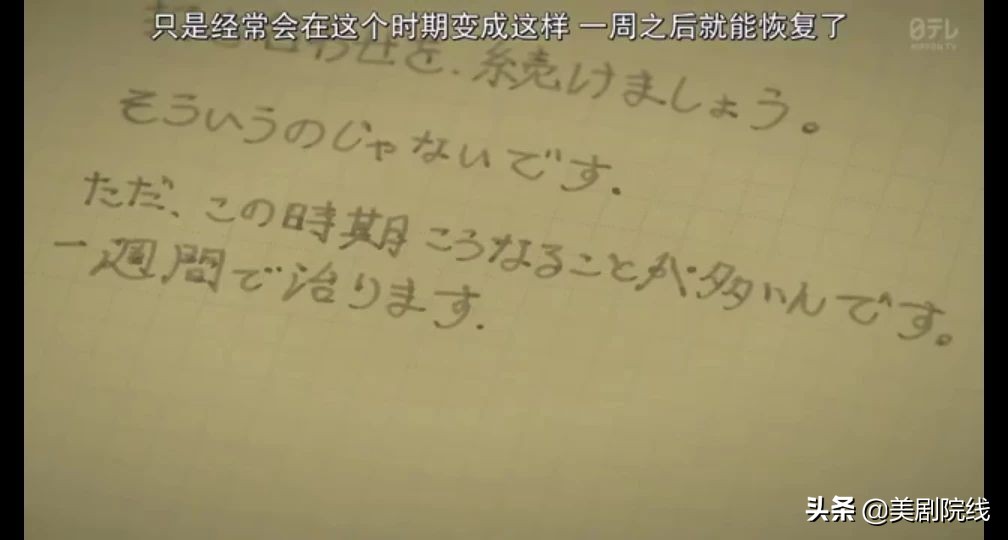 只是经常会在这个时期变成这样 一周之后就能恢复了
日テレ
NIPPON TV
わせを、続けましょう。
そういうのじゃないです.
ただ、この時期こうなることが多いんです。
一週間で治ります.
头条 @美剧院线